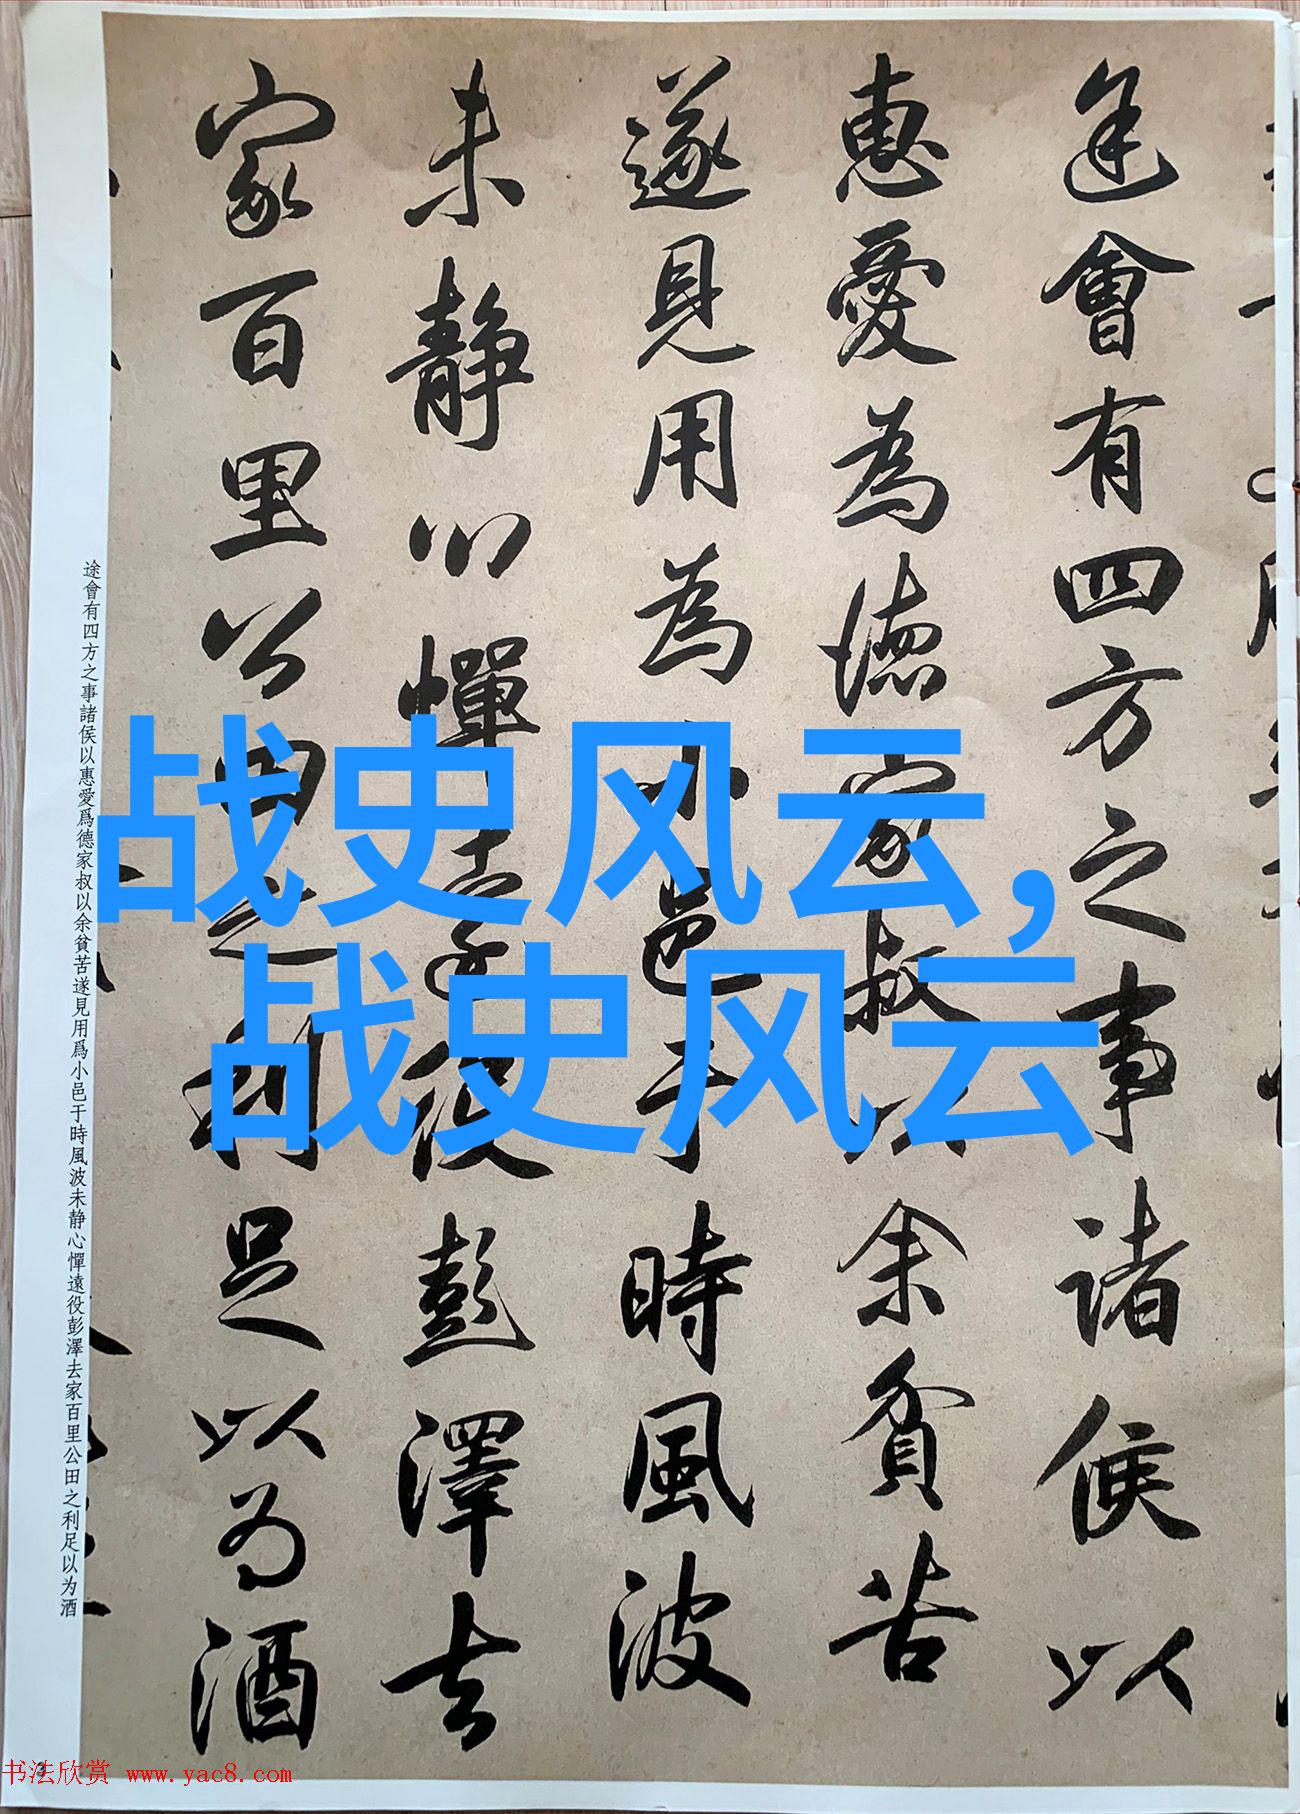 途會有四方之事諸侯以
惠愛為德家叔以余貧苦
遂見用為小邑于時風波
未静心憚遠役彭澤去
家百里公田之利足以为酒
途會有四方之事諸侯以惠愛爲德家叔以余貧苦遂見用爲小邑于時風波未静心憚遠役彭澤去家百里公田之利足以为酒
战史风云,
战史风云
书法欣赏 www.yac8.com